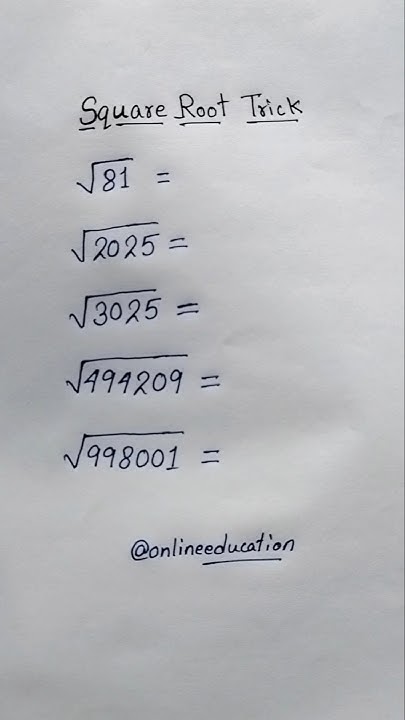 Square Root Trick
√81 =
√2025 =
√3025 =
√494209 =
√998001 =
@onlineeducation